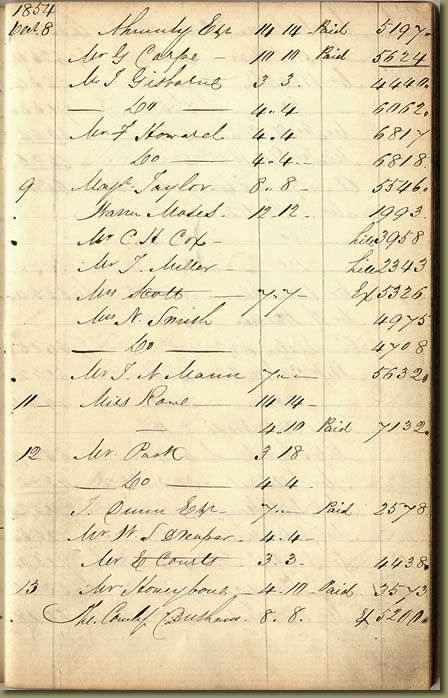 1854
Oct 8 Ahmuty Esqr 14 14 Paid 5197
Mr G Carpe - 10 10 Paid 5624
Mr J Gisborne 3 3. 4440.
— Do — 4.. 4 6062.
Mr F Howard 4.. 4 6817
Do — 4.. 4 - 6818
9 Majr Taylor. 8.. 8 - 5546.
Moses. 12.12. 1993
Mr C. H Cox - hire 3958
Mr J. Miller - hire 2343
Mrs Scott - 7.. 7 - Ex 5326
Mrs N. Smith 4975
— Do — 4708
Mr J. N Mann 7 .. - 5632.
11 - Miss Rowe - 14 14 -
— 4.. 10 Paid 7132.
12 Mr. Park 3 18
— Do — 4 4.
J. Dunn Esqr - 7 .. - Paid 2578
Mr. W. S Draper - 4.. 4 -
Mr E Courts 3. 3. 4438.
13 Mr Honeybone - 4.. 10 - Paid 3573
The County Durham. 8. 8. Ex 5200.